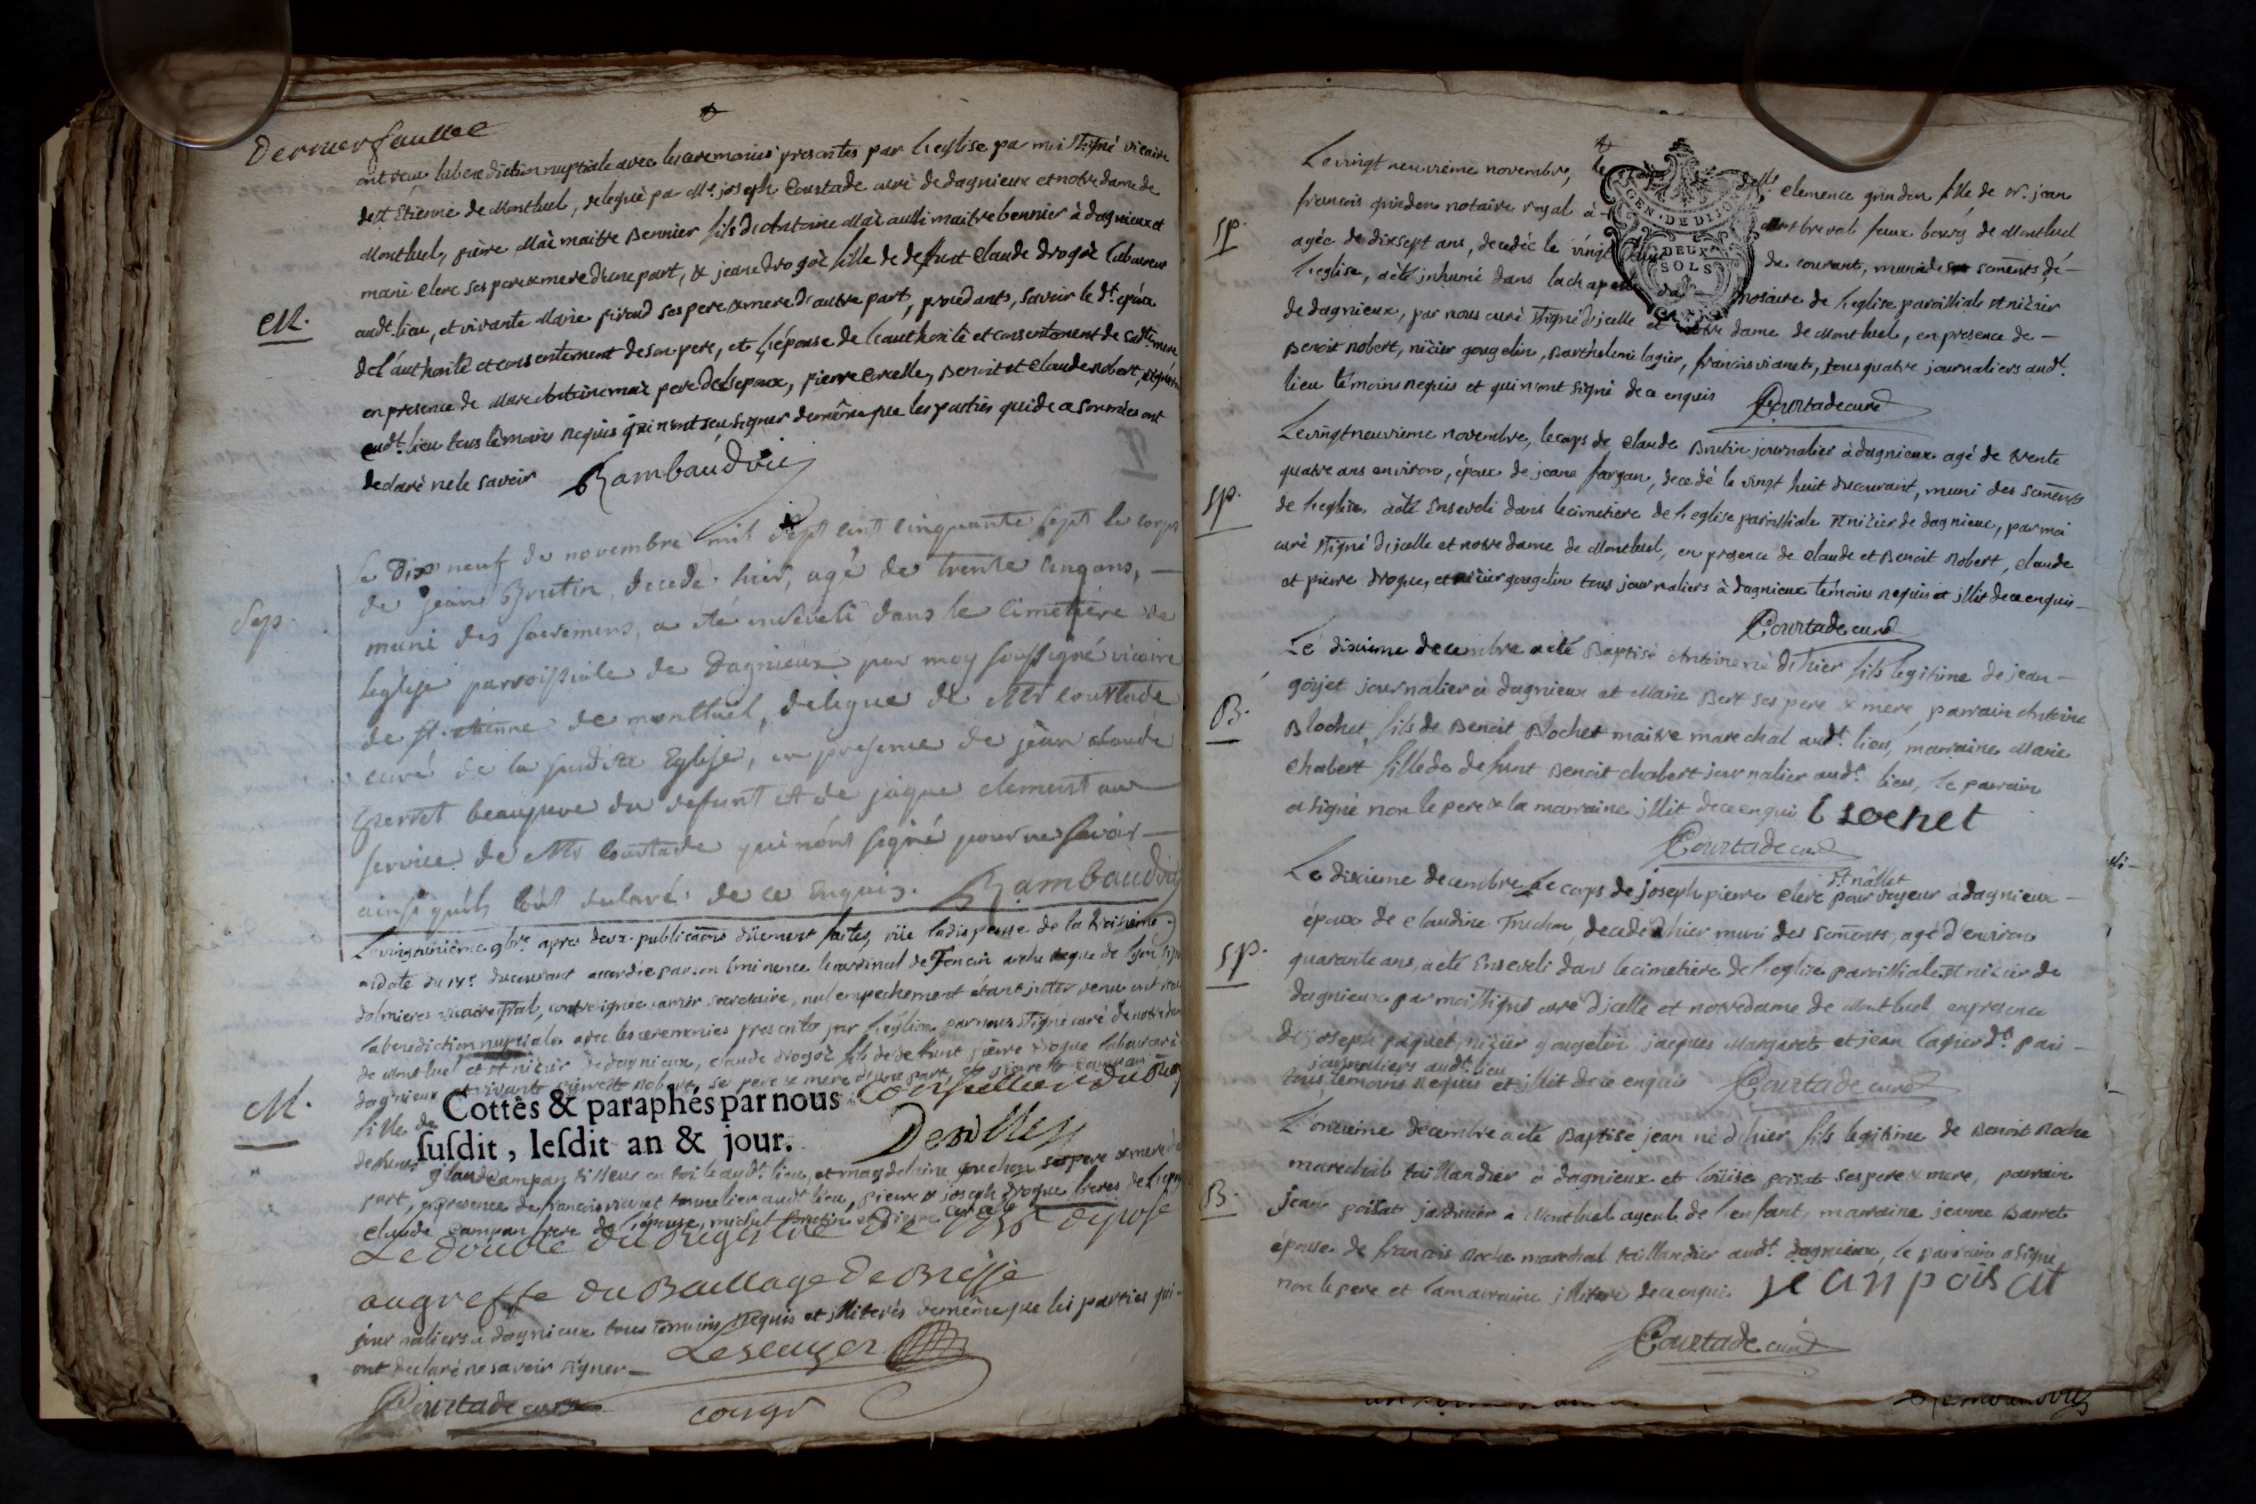 Dernier feuillet
ont reçu la benediction nuptiale avec les ceremonies prescrites par l'eglise par moi ssigné vicaire
de st Etienne de Montluel, delegué par Mr. joseph Courtade curé de dagnieux et notre dame de
Montluel, pierre Mai maitre Bennier fils d'Antoine Mai aussi maitre bennier à dagnieux et
marie Clerc ses pere & mere d'une part, & jeane Drogoz fille de defunt Claude Drogoz laboureur
M.
audt. lieu, et vivante Marie piroud ses pere & mere d'autre part, procedants, savoir le dt. époux
de l'authorité et consentement de son pere, et l'épouse de l'authorité et consentement de sadte. mere
en presence de Antoine mai pere de l'epoux, pierre Benoit et Claude Robert,
audt. lieu tous témoins requis qui n'ont sçeu signer de même que les parties qui de ce sommées ont
declaré ne le savoir Rambaud vic
Sep.
Le Dix neuf de novembre mil sept cent cinquante sept le corps
de jean Brutin, decedé hier, agé de trente cinq ans,
muni des sacremens, a été enseveli dans le cimetière de
l'eglise parroissiale de Dagnieux par moy soussigné vicaire
de st. etienne de montluel, delegué de Mr Courtade
curé de la susdite Eglise, en presence de jean claude
perret beaupere du defunt et de jaque clement au
service de Mr Courtade qui n'ont signé pour ne savoir
ainsi qu'ils l'ont declaré de ce enquis. Rambaud vic
Le vingtunième 9bre. apres deux publications düement faites, vüe la dispense de la troisième
en date du du courant accordée par son Eminence le cardinal de Tencin archeveque de Lyon
nul empechement étant venu ont reçu
la benediction nuptiale avec les ceremonies prescrites par l'église par nous ssigné curé de notre dame
de Montluel et st nizier de dagnieux, claude drogoz fils de defunt pierre drogue laboureur à
M.
dagnieux et vivante pierrette Robert ses pere & mere d'une part, et
fille de
Cottés & paraphés par nous Conseiller du Roy
susdit, lesdit an & jour.
claude campan tisseur en toile audt. lieu, et magdelaine truchon ses pere & mere d'autre
part, en presence de francois tonnelier audt. lieu, pierre & joseph drogue freres de l'epoux
Claude Campan frere de l'épouse, michel Brutin et pierre
Le double du Registre de 1756 deposé
au greffe du Baillage de Bresse
journaliers à dagnieux tous temoins requis et illiterés de même que les parties qui
ont declaré ne savoir signer
Courtade curé
Le vingt neuvieme novembre, le corps de delle. Clemence grindon fille de Mr. jean
GEN. DE DIJON
DEUX
SOLS
Sp.
francois grindon notaire royal à
agée de dixsept ans, decedée le vingt du courant, munie des sacments de
l'eglise, a été inhumé dans la chapelle du rosaire de l'eglise paroissiale st nizier
de dagnieux, par nous curé ssigné d'icelle et notre dame de Montluel, en presence de
Benoit Robert, nizier gougelin, Barthelemi lagier, francois vianet, tous quatre journaliers audt.
lieu témoins requis et qui n'ont signé de ce enquis Courtade curé
Le vingt neuvieme novembre, le corps de Claude Brutin journalier à dagnieux agé de trente
quatre ans environ, époux de jeane fargan, decedé le vingt huit du courant, muni des sacments
Sp.
de l'eglise a été enseveli dans le cimetiere de l'eglise paroissiale st nizier de dagnieux, par moi
curé ssigné d'icelle et notre dame de Montluel, en presence de Claude et Benoit Robert, claude
et pierre drogue, et nizier gougelin tous journaliers à dagnieux témoins requis et illit de ce enquis
Courtade curé
Le dixieme decembre a été Baptisé Antoine né d'hier fils legitime de jean
B.
goyet journalier à dagnieux et Marie Bert ses pere & mere, parrain Antoine
Blochet, fils de Benoit Blochet maitre marechal audt. lieu, marraine Marie
Chabert fille de defunt Benoit chabert journalier audt. lieu, le parrain
a signé non le pere & la marraine illit de ce enquis Blochet
Courtade curé
Le dixieme decembre, le corps de joseph pierre Clerc pourvoyeur à dagnieux
époux de Claudine Truchon, decedé d'hier muni des sacments, agé d'environ
Sp.
quarante ans, a été enseveli dans le cimetiere de l'eglise paroissiale st nizier de
dagnieux par moi ssigné curé d'icelle et notre dame de Montluel en presence
de joseph paquet, nizier gougelin jacques Margaret et jean lagier
journaliers audt. lieu
tous témoins requis et illit de ce enquis Courtade curé
L'onzieme decembre a été Baptisé jean né d'hier fils legitime de Benoit Roche
marechal taillandier à dagnieux et Loüise poisat ses pere & mere, parrain
B.
jean poisat jardinier à Montluel ayeul de l'enfant, marraine jeanne Barret
epouse de francois Roche marechal taillandier audt. dagnieux, le parrain a signé
non le pere et la marraine illiteré de ce enquis jean poisat
Courtade curé